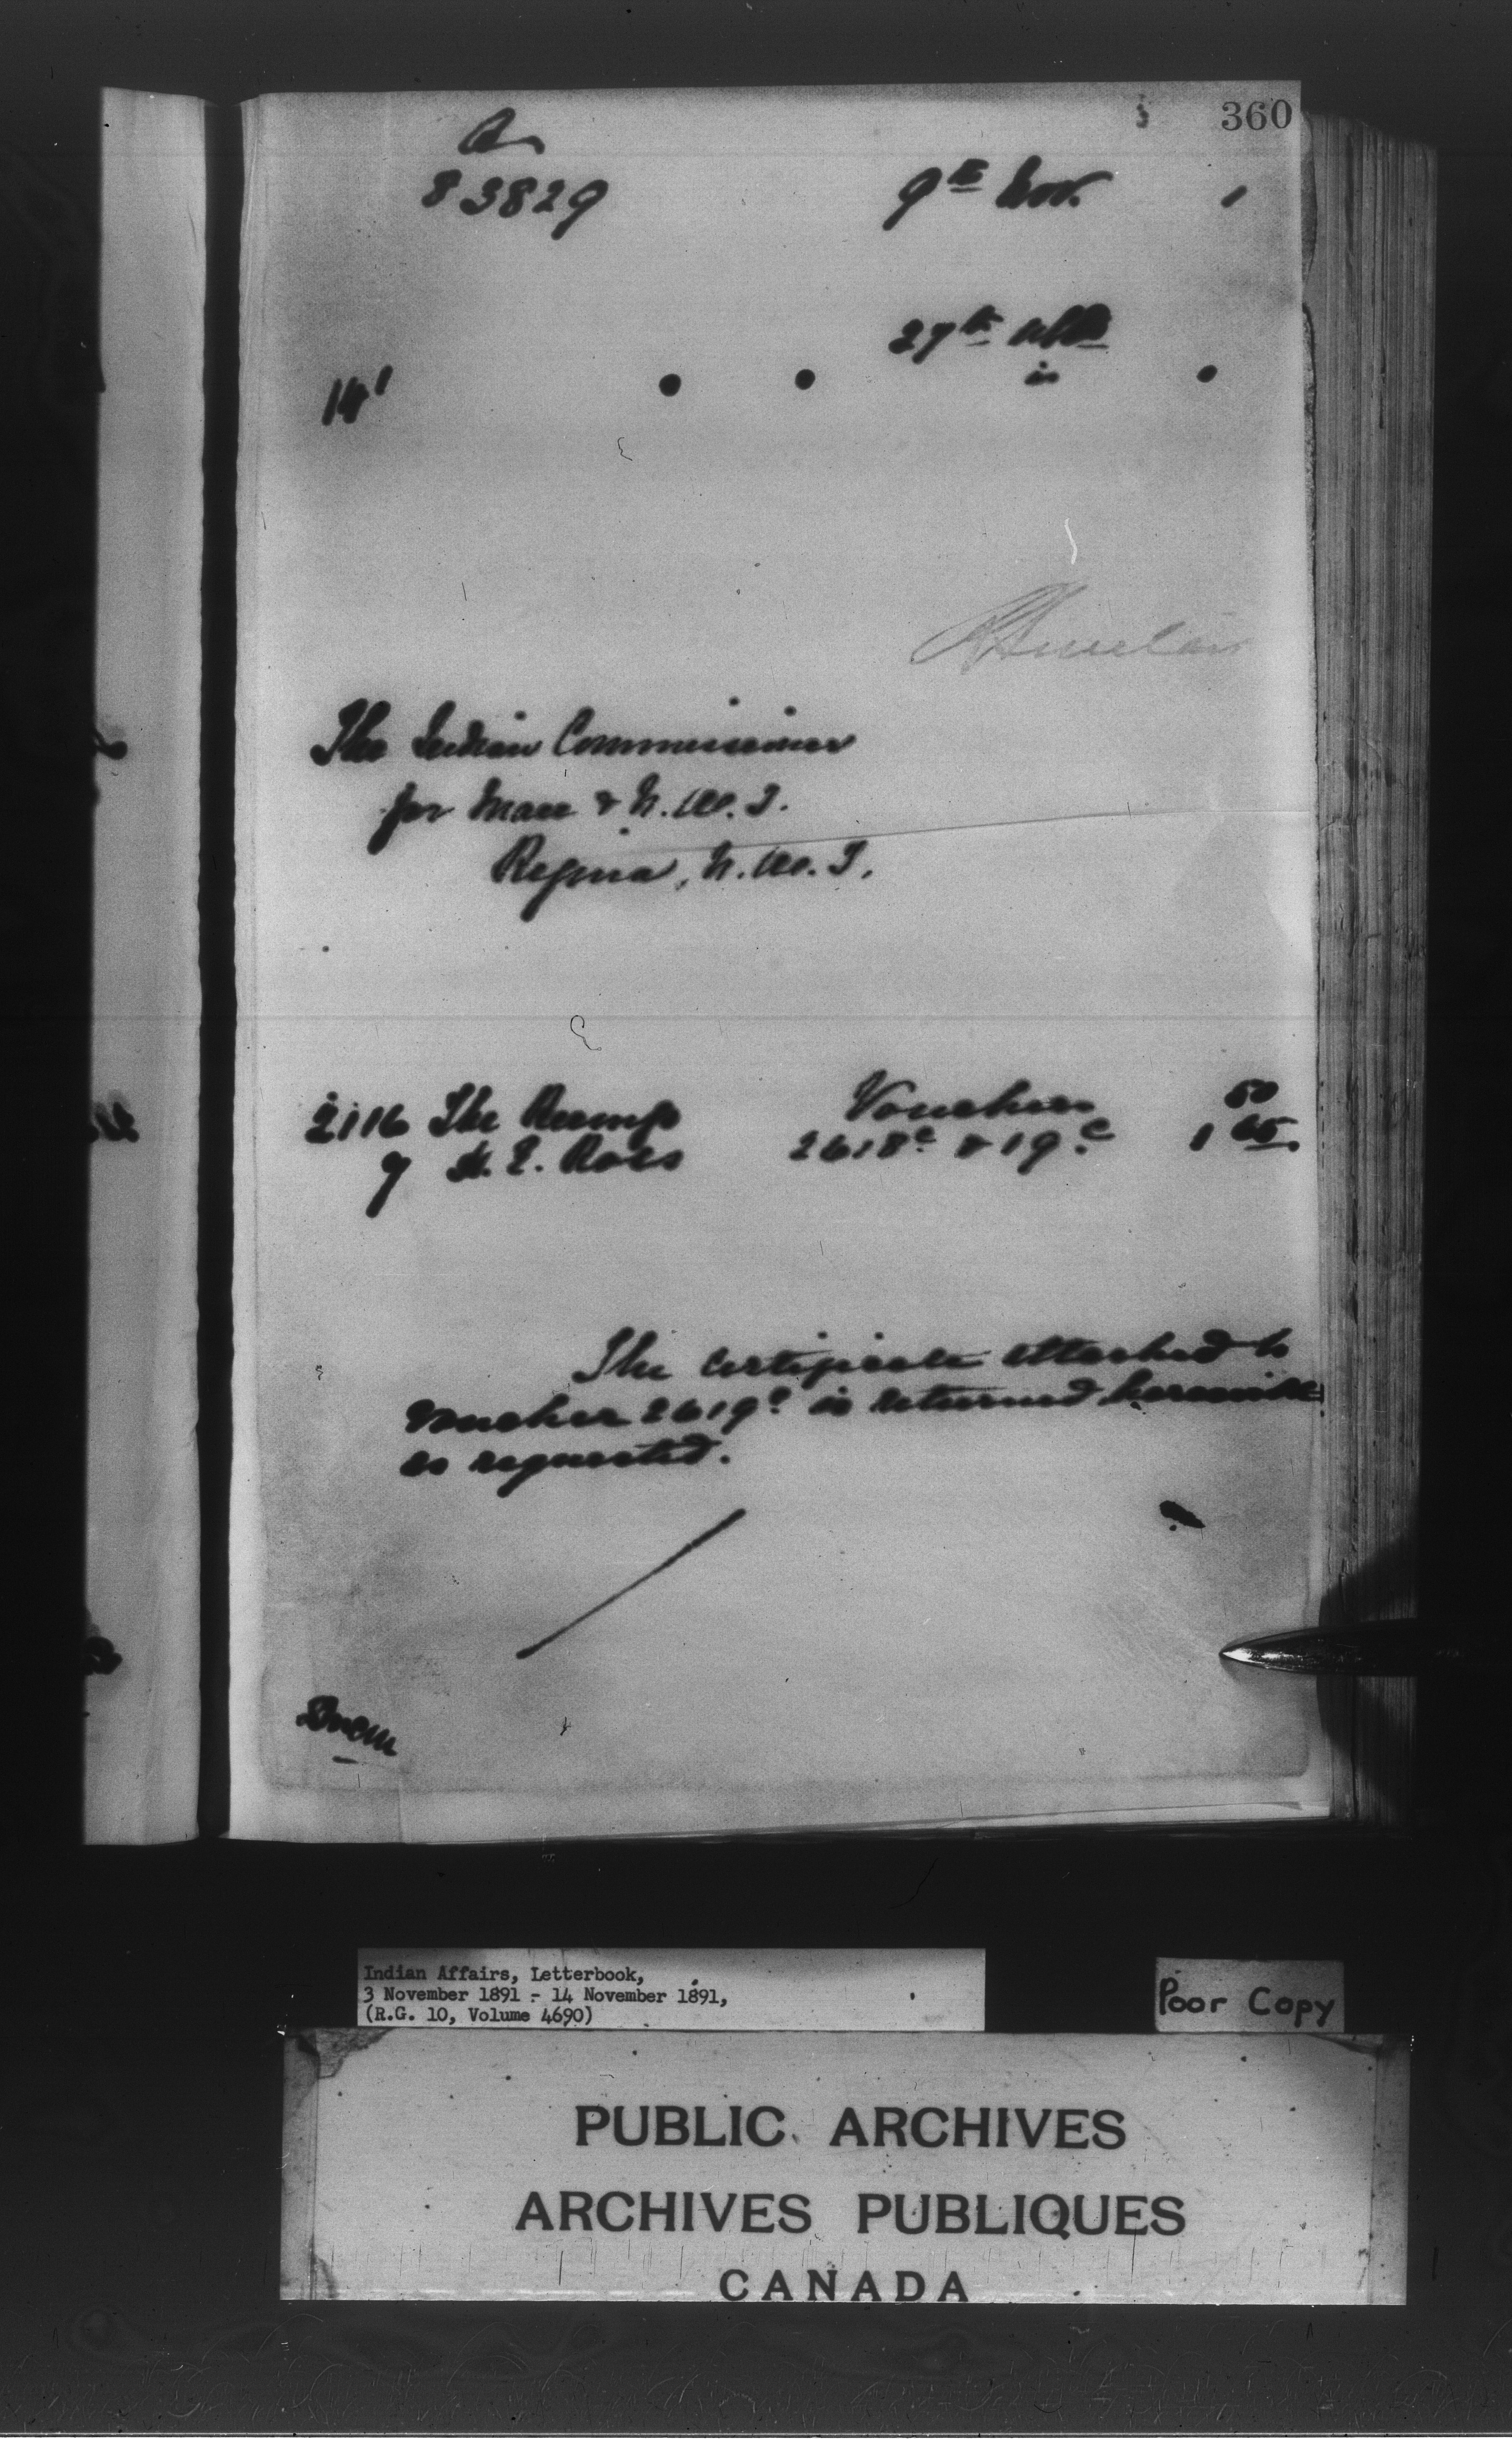 360
A
83829
9th Nov. 1
27th ulto
in
14'
R Sinclair
The Indian Commissioner
for Man & N.W.T.
Regina, N.W.T.
2116 The Receipt Vouchers 50
7 Ross 2618c & 19c 1 65.
The certificate attached to
voucher 2619c is returned herewith
as requested.
Indian Affairs, Letterbook,
3 November 1891 - 14 November 1891,
(R.G. 10, Volume 4690)
Poor Copy
PUBLIC ARCHIVES
ARCHIVES PUBLIQUES
CANADA